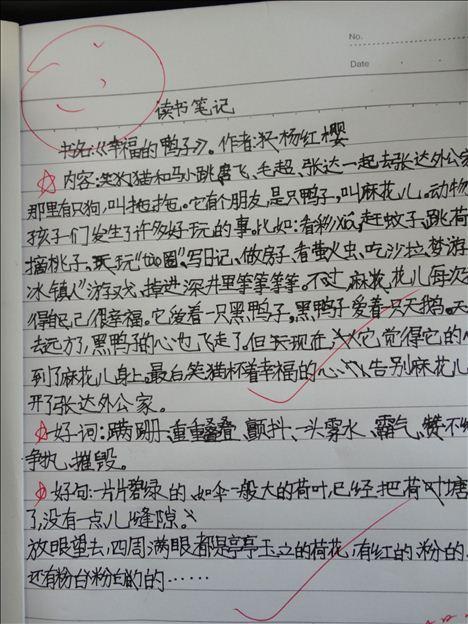 No.
Date
读书笔记
书名:《幸福的鸭子》。作者:杨红樱
内容:笑狗猫和马小跳、唐飞、毛超、张达一起去张达外公家
那里有只狗,叫拖拖。它有个朋友,是只鸭子,叫麻花儿。动物
孩子们发生了许多好玩的事。比如:看彩虹、赶蚊子、跳荷
摘桃子、玩玩“圈”、写日记、做房子、看萤火虫、吃沙拉、梦游
冰镇人”游戏、掉进深井里等等等等。不过,麻花儿每次
得自己很幸福。它爱着一只黑鸭子。黑鸭子爱着一只天鹅。天
去远方了,黑鸭子的心也飞走了。但现在它,觉得它的
到了麻花儿身上。最后,笑猫怀着幸福的心告别麻花儿
开了张达外公家。
好词:蹒跚、重重叠叠、颤抖、一头雾水、霸气、赞不
争执、摧毁。
好句:一片片碧绿的、如伞一般大的荷叶,已经把荷叶塘
了,没有一点儿缝隙。
放眼望去,四周满眼都是亭亭玉立的荷花,有红的、粉的、
还有粉白粉白的的……